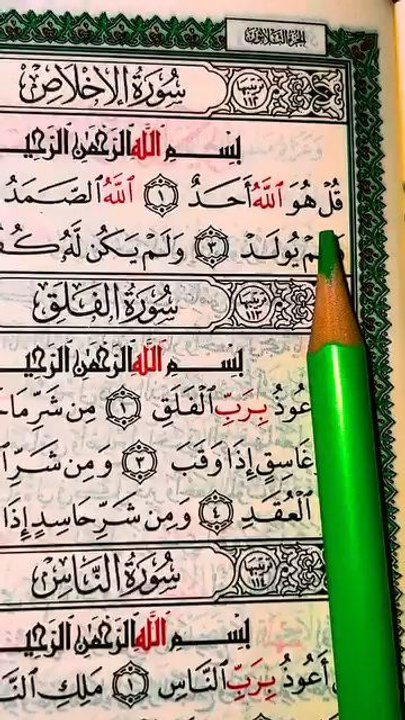 الجزء الثلاثون
سُورَةُ الإِخْلَاصِ ترتيبها ١١٢
بِسْمِ ٱللَّهِ ٱلرَّحْمَٰنِ ٱلرَّحِيـ
قُلْ هُوَ ٱللَّهُ أَحَدٌ ١ ٱللَّهُ ٱلصَّمَدُ
ـمْ يُولَدْ ٣ وَلَمْ يَكُن لَّهُۥ كُفُـ
سُورَةُ الفَلَقِ ترتيبها ١١٣
بِسْمِ ٱللَّهِ ٱلرَّحْمَٰنِ ٱلرَّحِيـ
ـعُوذُ بِرَبِّ ٱلْفَلَقِ ١ مِن شَرِّ مَا
غَاسِقٍ إِذَا وَقَبَ ٣ وَمِن شَرِّ
ٱلْعُقَدِ ٤ وَمِن شَرِّ حَاسِدٍ إِذَا
سُورَةُ النَّاسِ ترتيبها ١١٤
بِسْمِ ٱللَّهِ ٱلرَّحْمَٰنِ ٱلرَّحِيـ
أَعُوذُ بِرَبِّ ٱلنَّاسِ ١ مَلِكِ ٱلنَّـ